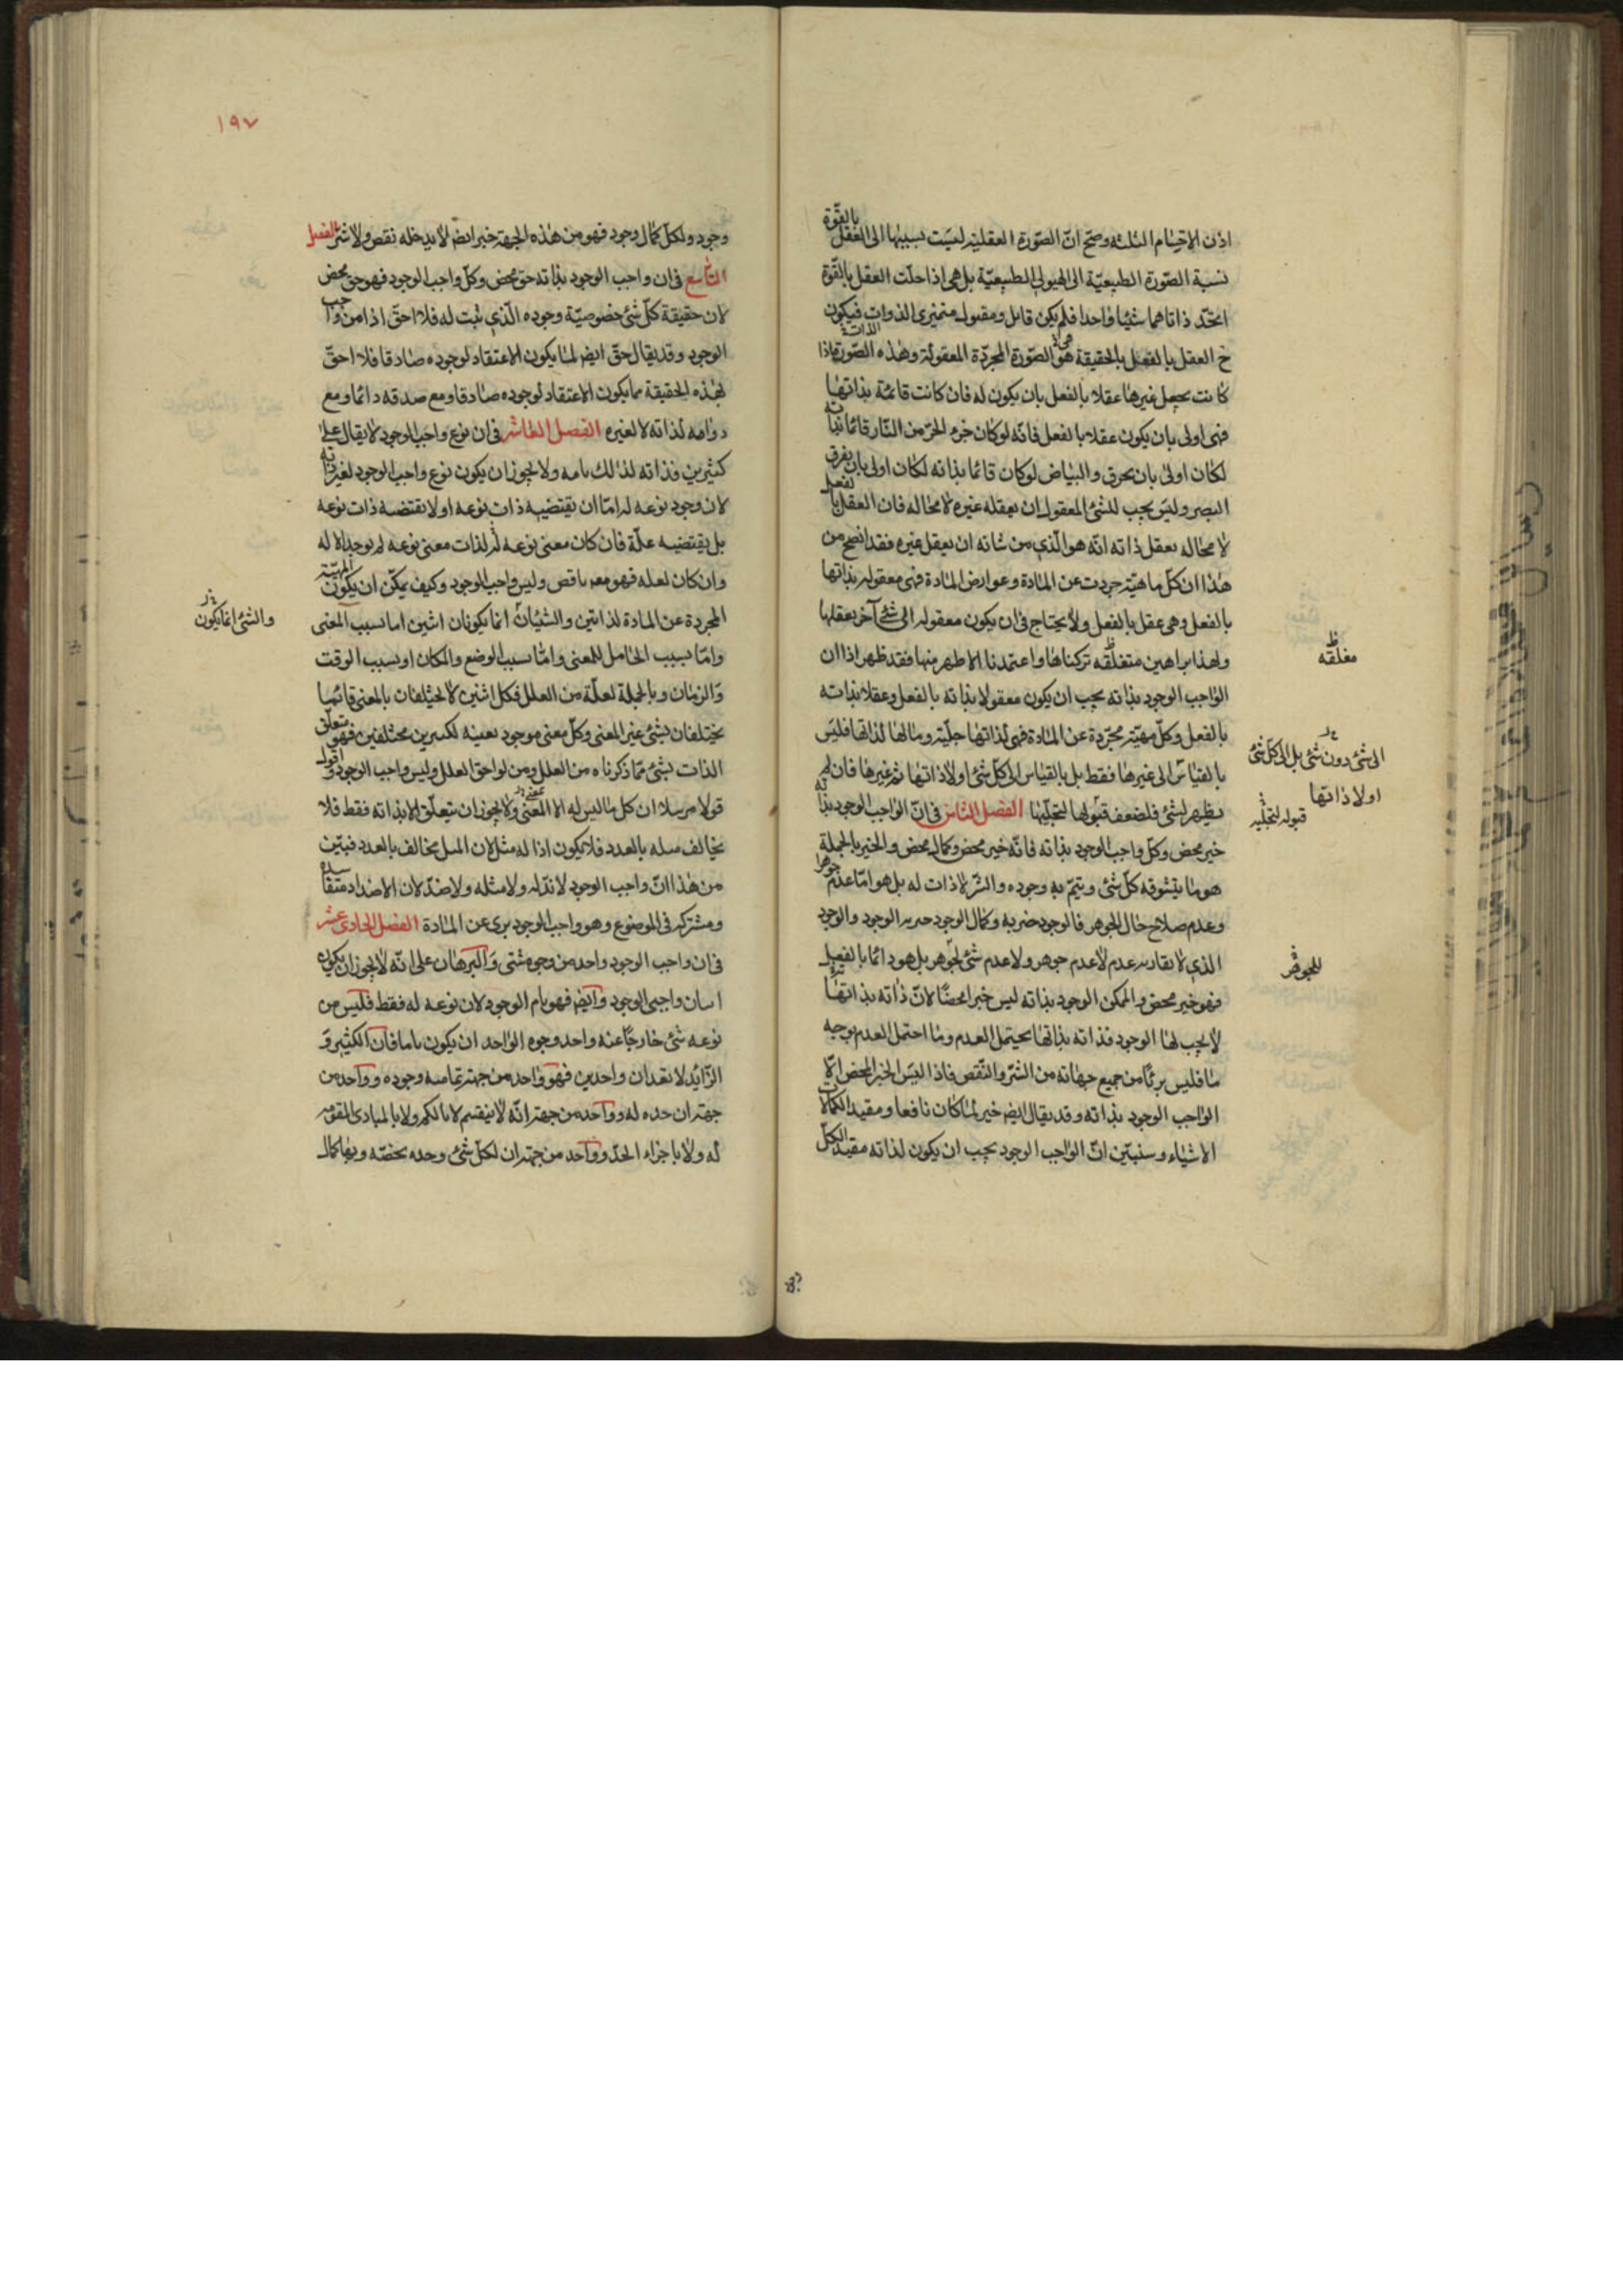 اذن الاقسام الثلثة وصحّ انّ الصّورة العقلية ليست نسبتها الى العقل بالقوّة
نسبة الصّورة الطبيعيّة الى الهيولى الطبيعيّة بل هى اذا حلّت العقل بالقوّة
اتّحد ذاتاهما شيئا واحدا فلم يكن قابل ومقبول متميزى الذوات فيكون
ح العقل بالفعل بالحقيقة هو الصّورة المجرّدة المعقولة وهذه الصّورة اذا
كانت تجعل غيرها عقلا بالفعل بان يكون له فان كانت قائمة بذاتها
فهى اولى بان يكون عقلا بالفعل فانّه لو كان جزء الحرّ من النّار قائما بذاته
لكان اولى بان يحرق والبياض لو كان قائما بذاته لكان اولى بان يفرق
البصر وليس يجب للشئ المعقول ان يعقله غيره لا محاله فان العقل بالفعل
لا محاله يعقل ذاته انّه هو الّذى من شانه ان يعقل غيره فقد اتضح من
هذا ان كلّ ماهيّة جردت عن المادة وعوارض المادة فهى معقوله بذاتها
بالفعل وهى عقل بالفعل ولا يحتاج فى ان يكون معقوله الى شئ آخر يعقلها
ولهذا براهين متغلقه تركناها واعتمدنا الاظهر منها فقد ظهر اذا ان
مغلقه
الواجب الوجود بذاته يجب ان يكون معقولا بذاته بالفعل وعقلا بذاته
بالفعل وكلّ مهيّة مجرّدة عن المادة فهى لذاتها جليّة ومالها لذاتها فليس
بالقياس الى غيرها فقط بل بالقياس الى كلّ شئ اولا ذاتها ثم غيرها فان لم
الى شئ دون شئ بل الى كلّ شئ
اولا ذاتها
يظهر لشئ فلضعف قبولها لتجلّيها الفصل الثامن فى انّ الواجب الوجود بذاته
قبوله لتجلّيه
خير محض وكلّ واجب الوجود بذاته فانّه خير محض وكمال محض والخير بالجملة
هو ما يتشوقه كلّ شئ ويتمّ به وجوده والشّر لا ذات له بل هو امّا عدم جوهر
وعدم صلاح حال الجوهر فالوجود خيرية وكمال الوجود خيرية الوجود والوجود
الذى لا يقارنه عدم لا عدم جوهر ولا عدم شئ لجوهر بل هو دائما بالفعل
للجوهر
فهو خير محض والممكن الوجود بذاته ليس خيرا محضا لانّ ذاته بذاتها
لا يجب لها الوجود فذاته بذاتها يحتمل العدم وما احتمل العدم بوجه
ما فليس بريئا من جميع جهاته من الشرّ والنّقص فاذا ليس الخير المحض الّا
الواجب الوجود بذاته وقد يقال ايض خير لما كان نافعا ومفيدا لكمالات
الاشياء وسنبيّن انّ الواجب الوجود يجب ان يكون لذاته مفيد الكلّ
١٩٧
وجود ولكلّ كمال وجود فهو من هذه الجهة خير ايض لا يدخله نقص ولا شرّ الفصل
التاسع فى ان واجب الوجود بذاته حق محض وكلّ واجب الوجود فهو حق محض
لان حقيقة كلّ شئ خصوصيّة وجوده الّذى ثبت له فلا احقّ اذا من واجب
الوجود وقد يقال حقّ ايض لما يكون الاعتقاد لوجوده صادقا فلا احقّ
بهذه الحقيقة مما يكون الاعتقاد لوجوده صادقا ومع صدقه دائما ومع
دوامه لذاته لا لغيره الفصل العاشر فى ان نوع واجب الوجود لا يقال على
كثيرين فذاته لذلك تامه ولا يجوز ان يكون نوع واجب الوجود لغير ذاته
لان وجود نوعه له امّا ان يقتضيه ذات نوعه او لا يقتضيه ذات نوعه
بل يقتضيه علّة فان كان معنى نوعه له لذات معنى نوعه لم يوجد الا له
وان كان لعله فهو معه ناقص وليس واجب الوجود وكيف يمكن ان يكون المهيّة
المجردة عن المادة لذاتين والشيئان انما يكونان اثنين اما بسبب المعنى
والشئ انما يكون
وامّا بسبب الحامل للمعنى وامّا بسبب الوضع والمكان او بسبب الوقت
والزمان وبالجملة لعلّة من العلل فكل اثنين لا يختلفان بالمعنى فانّما
يختلفان بشئ غير المعنى وكلّ معنى موجود بعينه لكثيرين مختلفين فهو متعلّق
الذات بشئ ممّا ذكرناه من العلل ومن لواحق العلل وليس واجب الوجود واقول
قولا مرسلا ان كل ما ليس له الا المعنى ولا يجوز ان يتعلّق الا بذاته فقط فلا
يخالف مثله بالعدد فلا يكون اذا له مثل لان المثل يخالف بالعدد فتبيّن
من هذا انّ واجب الوجود لا ندّ له ولا مثل له ولا ضدّ لان الاضداد متفاسده
ومشتركه فى الموضوع وهو واجب الوجود برى عن المادة الفصل الحادى عشر
فى ان واجب الوجود واحد من وجوه شتى والبرهان على انّه لا يجوز ان يكون
اثنان واجبى الوجود وايض فهو تام الوجود لان نوعه له فقط فليس من
نوعه شئ خارجا عنه واحد وجوه الواحد ان يكون تاما فان الكثير و
الزّايد لا يعدان واحدين فهو واحد من جهة تمامية وجوده وواحد من
جهة ان حده له وواحد من جهة انّه لا ينقسم لا بالكم ولا بالمبادى المقومه
له ولا باجزاء الحدّ وواحد من جهة ان لكلّ شئ وحده يخصّه وبها كمال